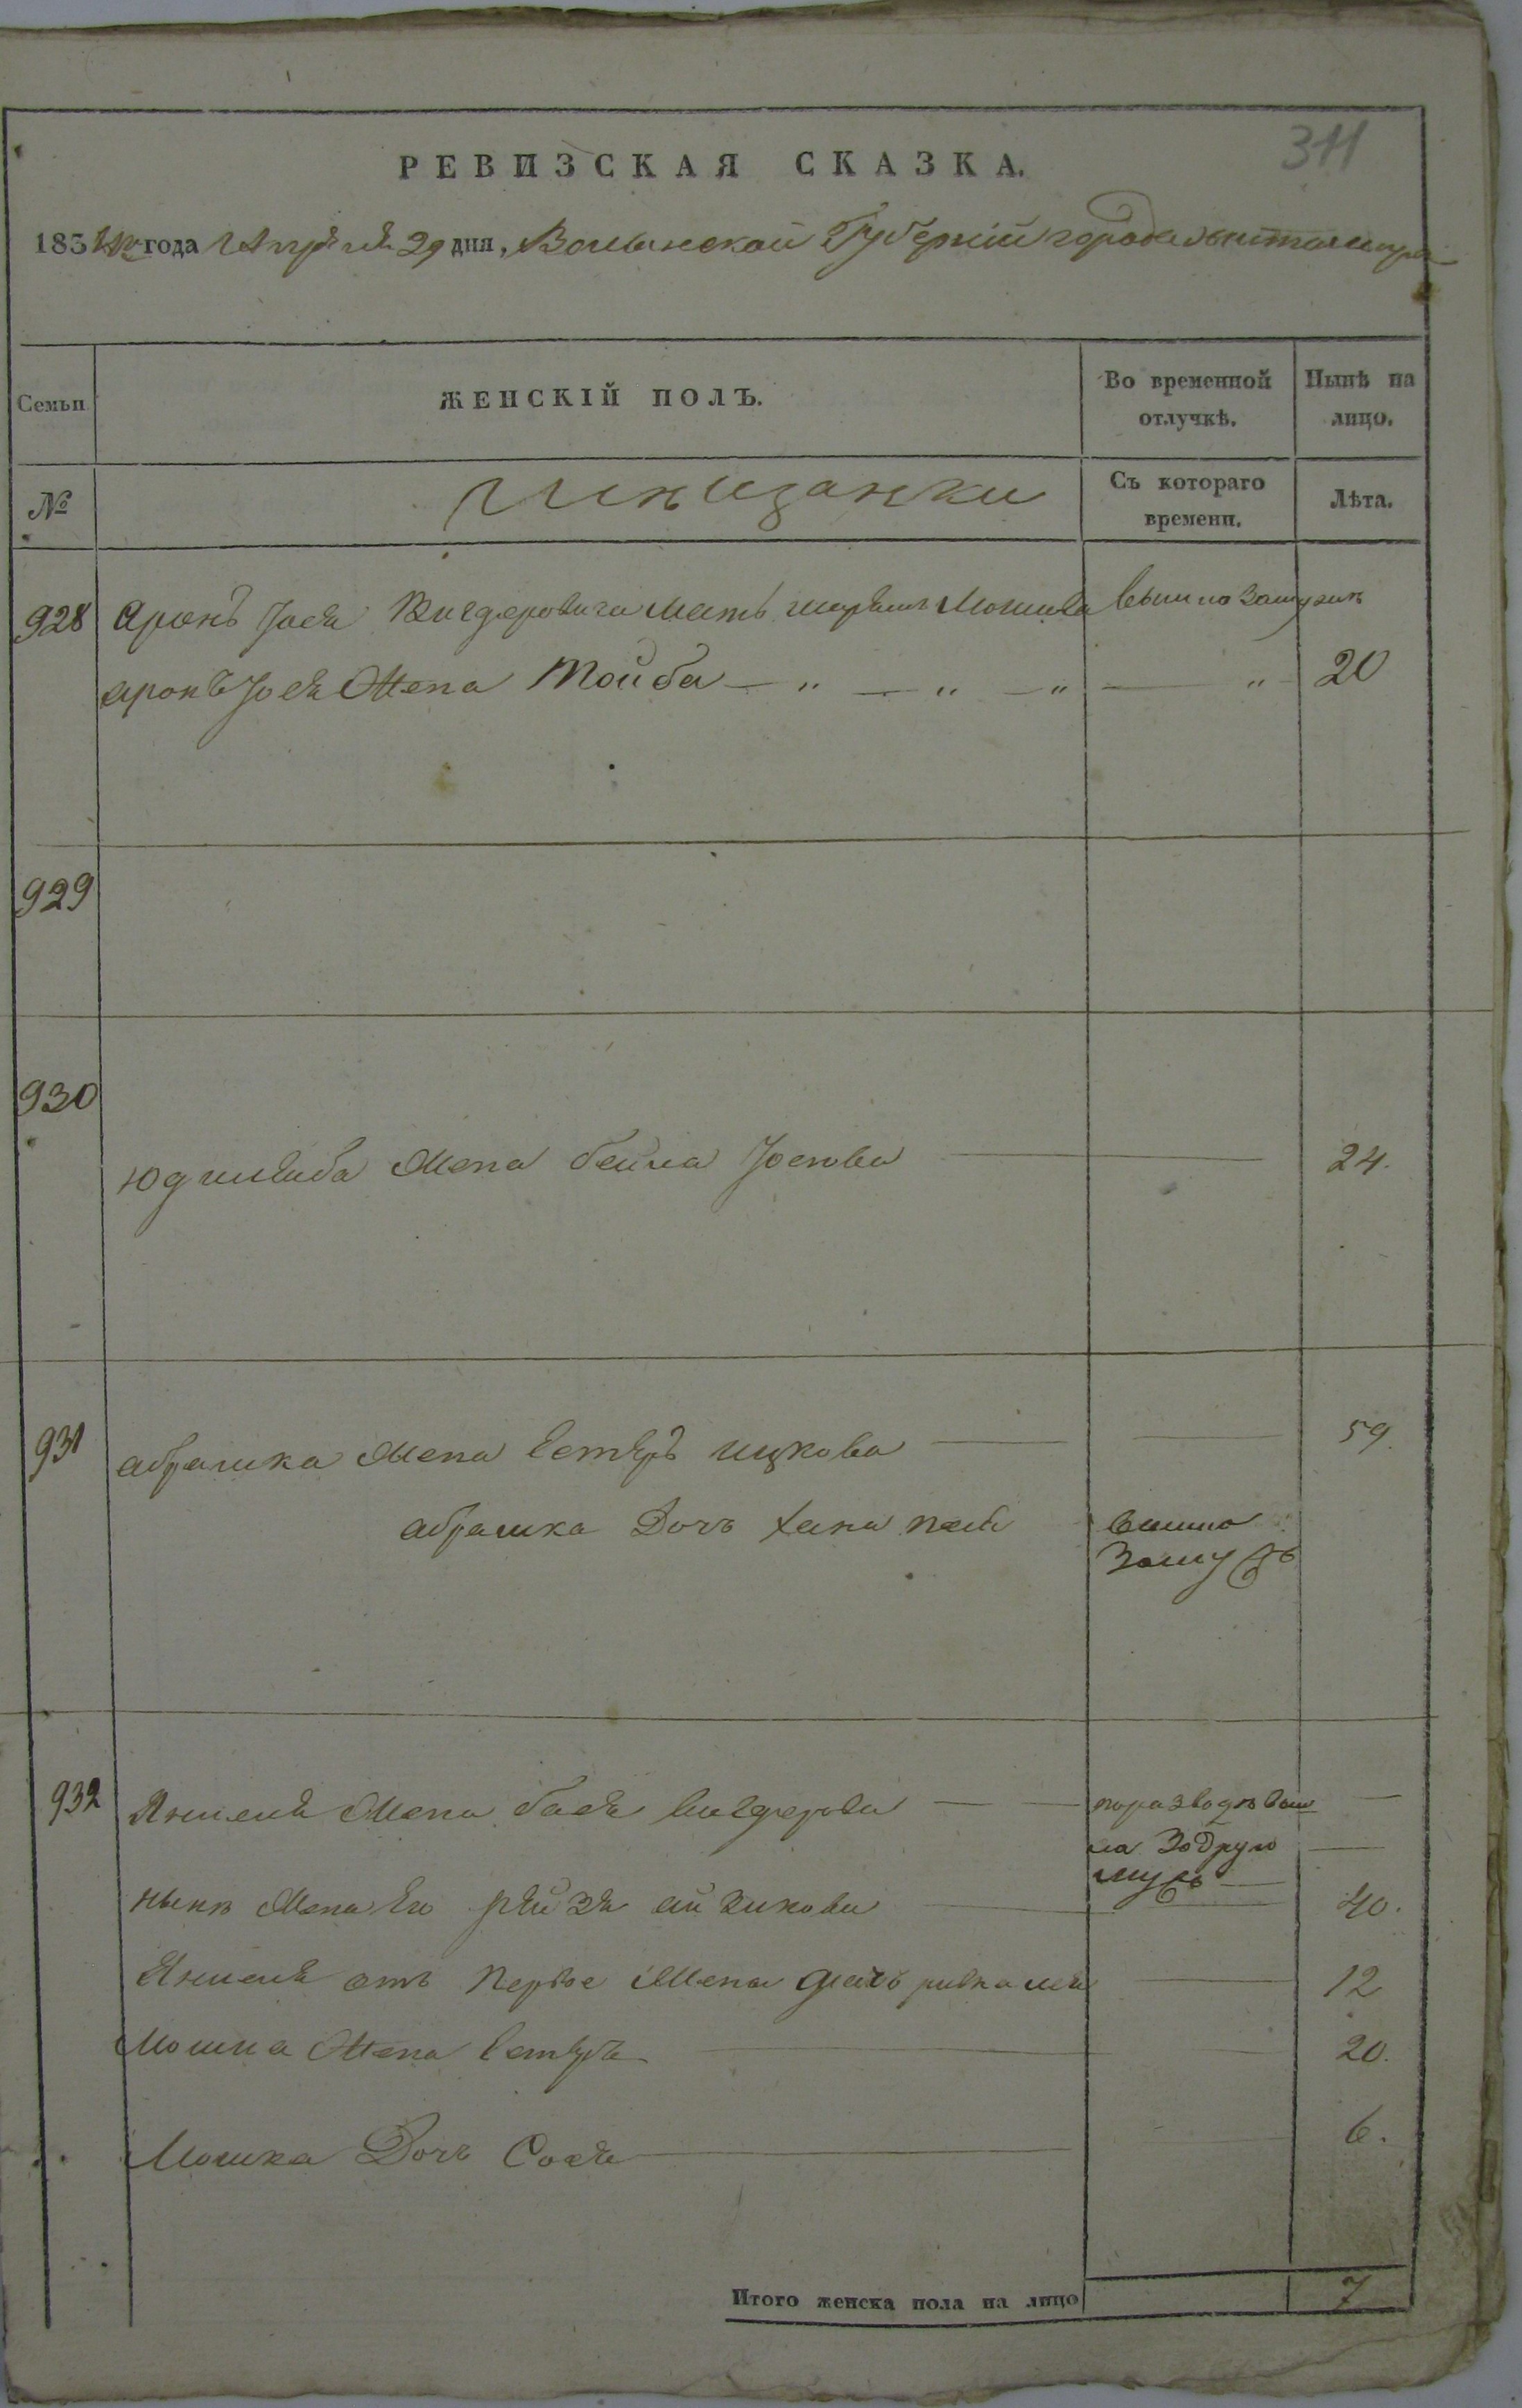 311
РЕВИЗСКАЯ СКАЗКА.
1834го года Апреля 29 дня, Волынской Губерніи города житомира
Семьи
ЖЕНСКІЙ ПОЛЪ.
Во временной отлучкѣ.
Нынѣ на лицо.
№
Мищанки
Съ котораго времени.
Лѣта.
928 Аронъ Іося Вигдеровича мать Мошкова вышла замужъ
аронъ Іося Жена Тойба — " — " — " — " 20
929
930
Юд Жена бейла Іосева 24.
931 абрамка Жена Естеръ ицкова 59.
абрамка Дочь хана вышла
Замужъ
932 Яншеля Жена бася вигдерова — — по разводѣ выш —
ла За друго
мужъ
нынѣ Жена Его рейзя айзикова 40.
Яншеля отъ Первое Жена дочь ривка лея 12
Мошка Жена Естеръ 20.
Мошка Дочь Сося 6.
Итого женска пола на лицо 7